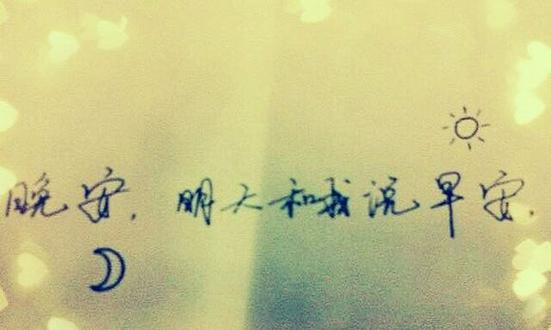 晚安. 明天和我说早安.